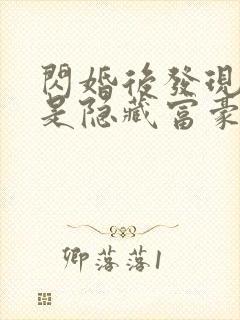 閃婚後發現
是隐藏富豪
卿落落1